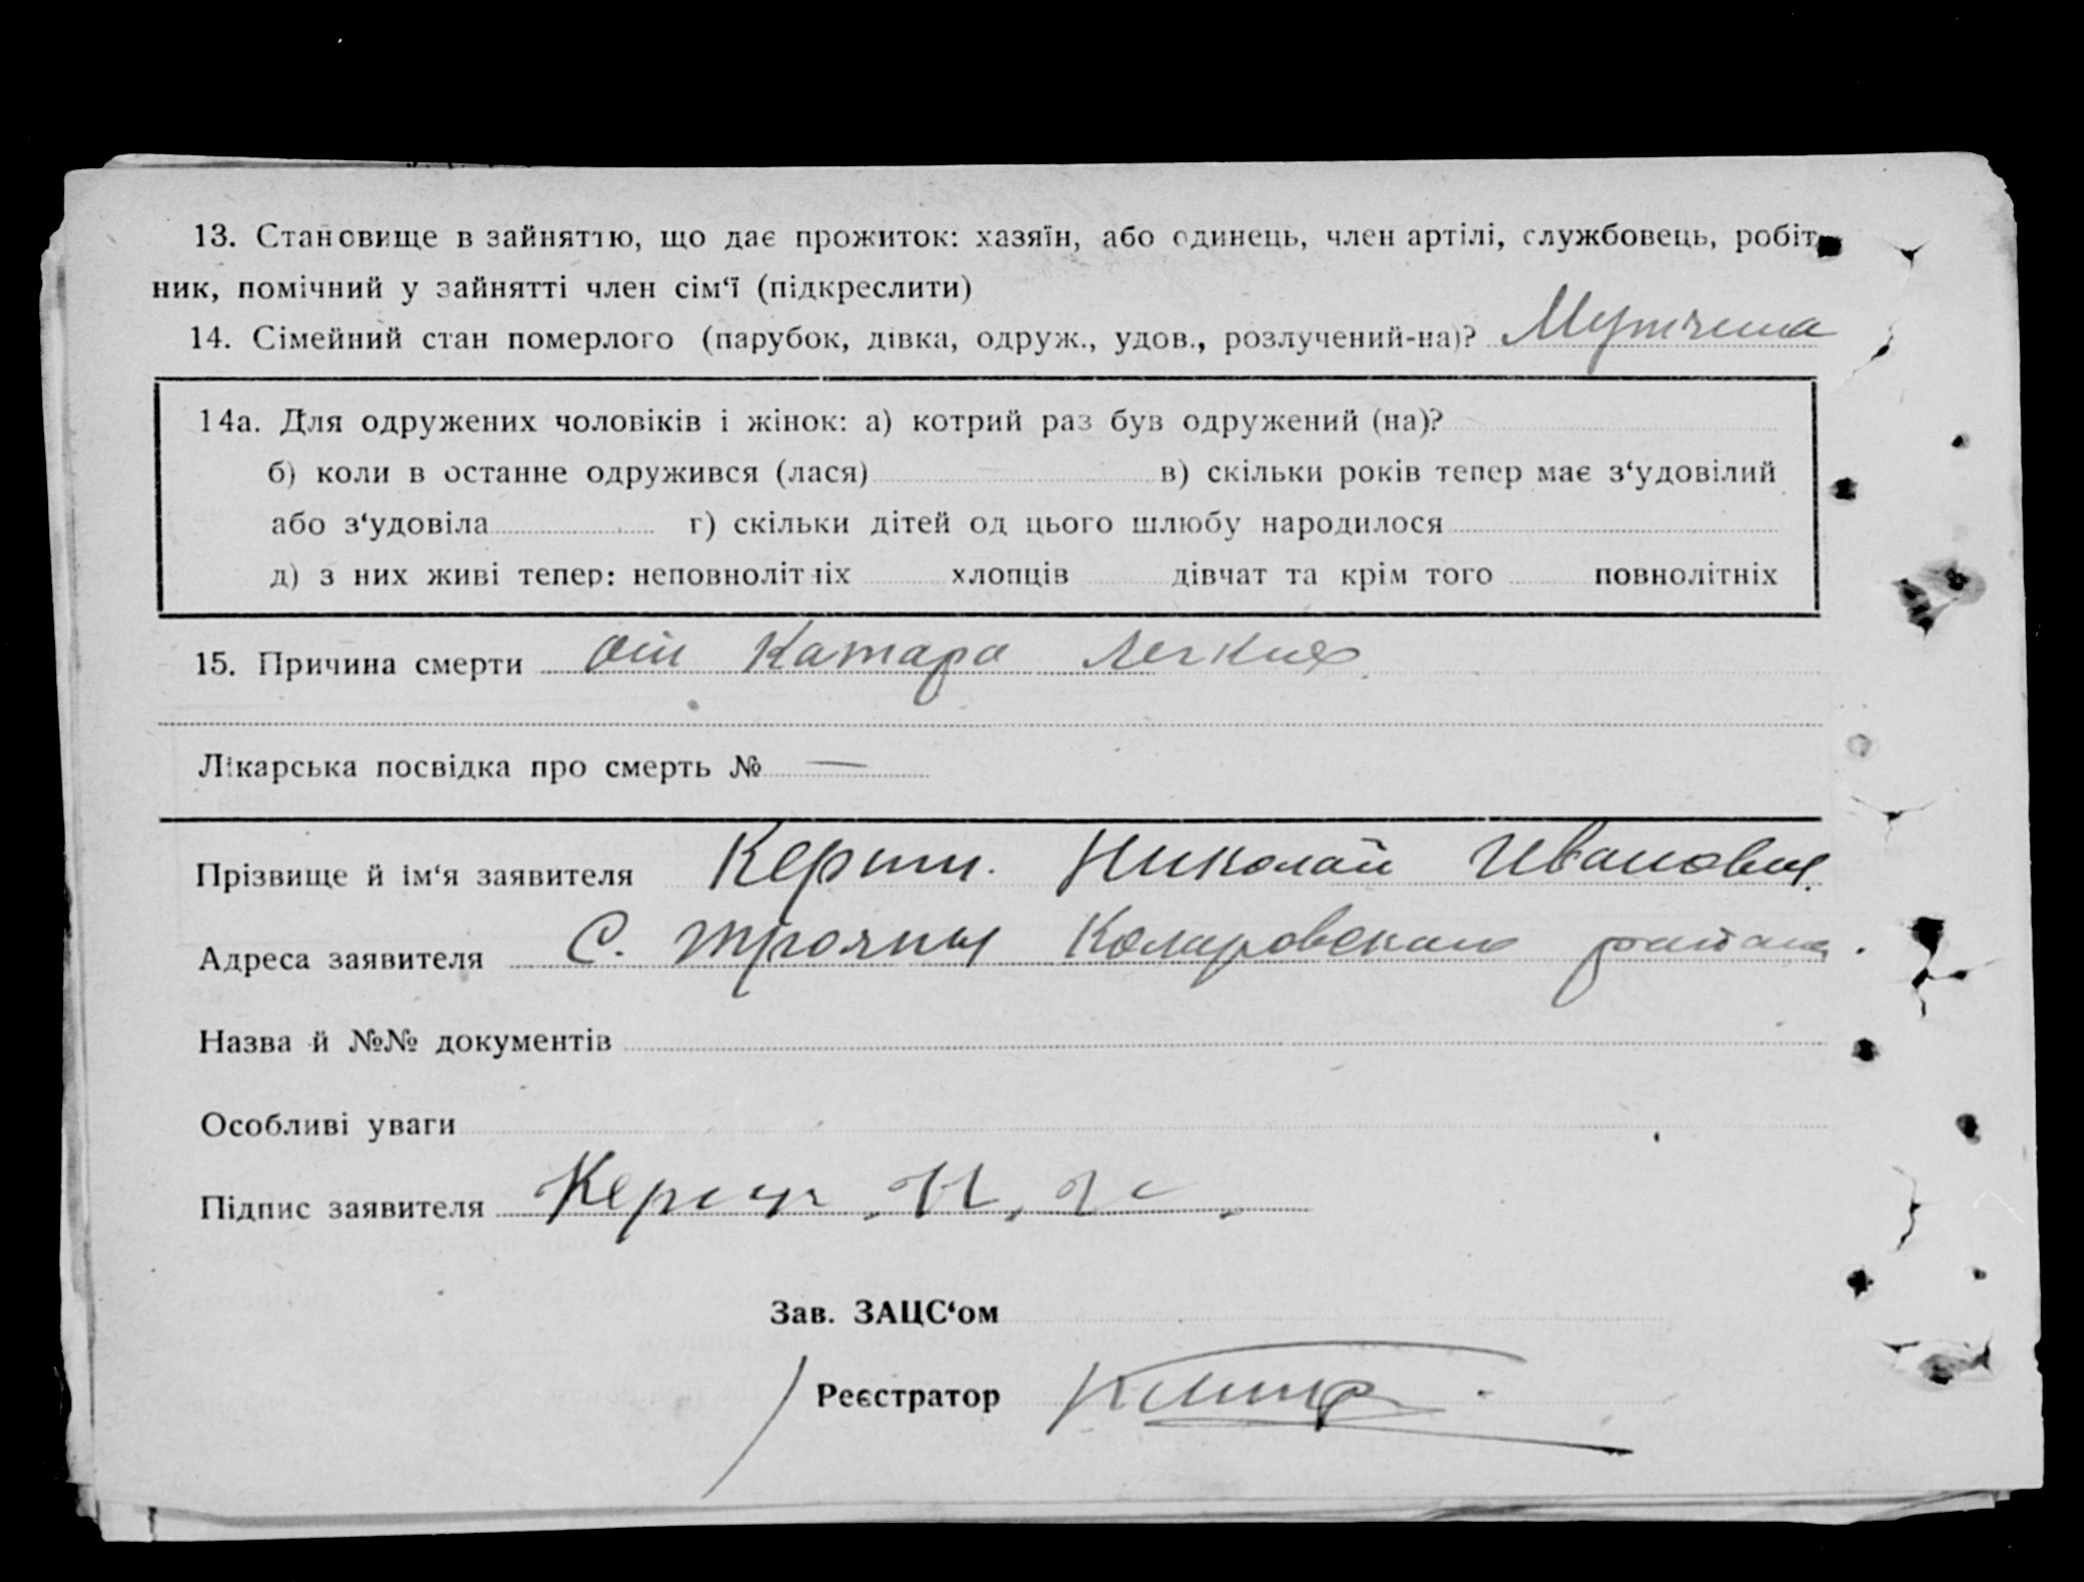 13. Становище в зайняттю, що дає прожиток: хазяїн, або одинець, член артілі, службовець, робіт-
ник, помічний у зайнятті член сім‘ї (підкреслити)
14. Сімейний стан померлого (парубок, дівка, одруж., удов., розлучений-на)? Мужчина
14а. Для одружених чоловіків і жінок: а) котрий раз був одружений (на)?
б) коли в останнє одружився (лася) в) скільки років тепер має з‘удовілий
або з‘удовіла г) скільки дітей од цього шлюбу народилося
д) з них живі тепер: неповнолітніх хлопців дівчат та крім того повнолітніх
15. Причина смерти От Катара легких
Лікарська посвідка про смерть № —
Прізвище й ім‘я заявителя Николай Иванович
Адреса заявителя С. Трояны Коларовского района.
Назва й №№ документів
Особливі уваги
Підпис заявителя
Зав. ЗАЦС‘ом
Реєстратор